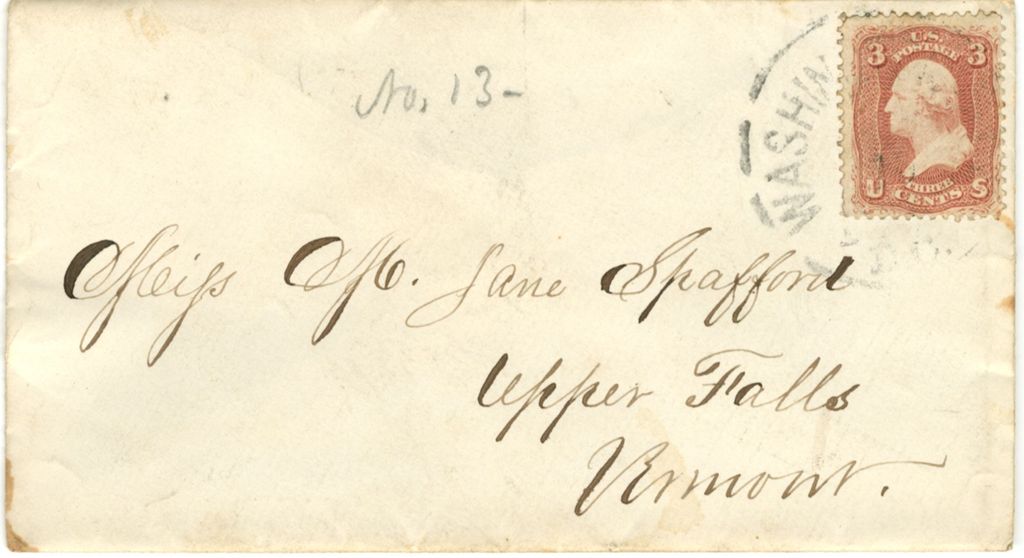 No. 13-
WASHIN
3 U.S. 3
POSTAGE
U THREE S
CENTS
Miss M. Jane Spafford
Upper Falls
Vermont.